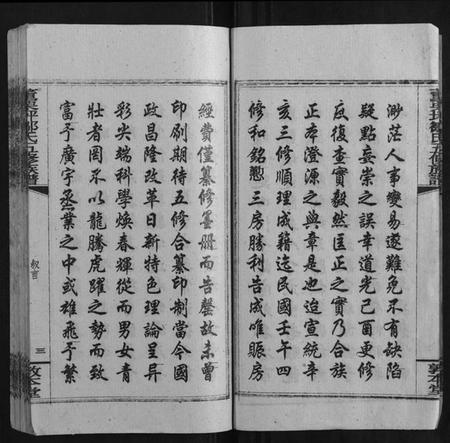 渺茫人事變易遂難免不有缺陷
疑點妄崇之誤幸道光己酉更修
庋復查實毅然匡正之實乃合族
正本澄源之典章是也迨宣統辛
亥三修順理成籍迄民國壬午四
修和銘懃三房勝利告成唯賬房
經費僅纂修墨册而告罄故未曾
印刷期待五修合纂印制當今國
政昌隆改革日新特色理論呈异
彩尖端科學煥春輝從而男女青
壯者罔不以龍騰虎躍之勢而致
富于廣宇丞業之中或雄飛于繁
叙言
三
敦本堂